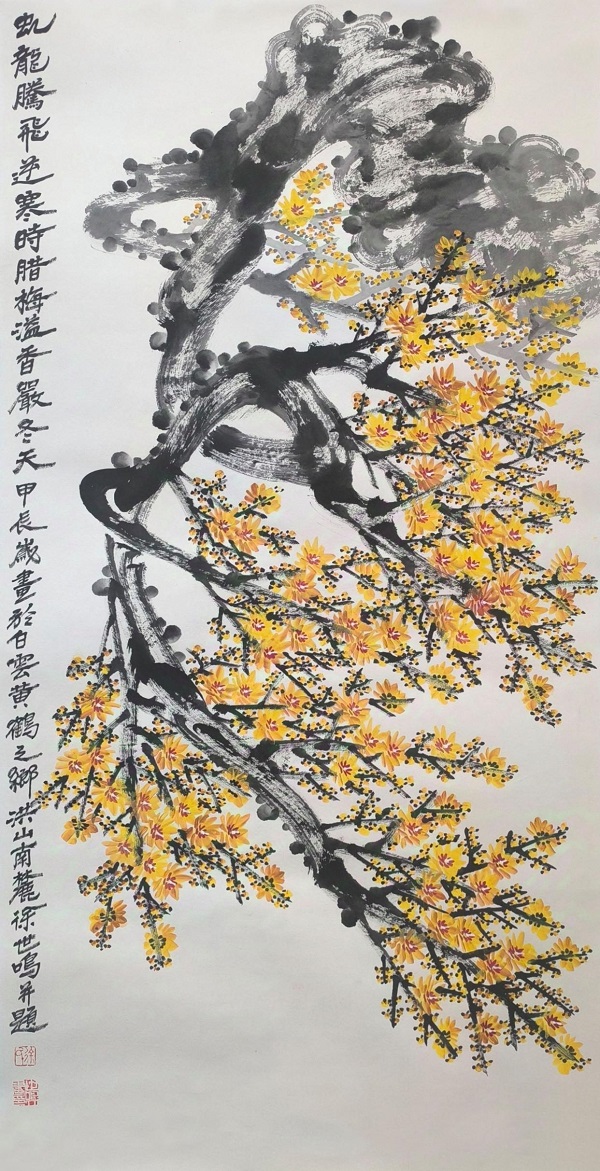 虬龍騰飛逆寒時腊梅溢香嚴冬天甲辰歲畫於白雲黃鶴之鄉洪山南麓徐世鳴并題